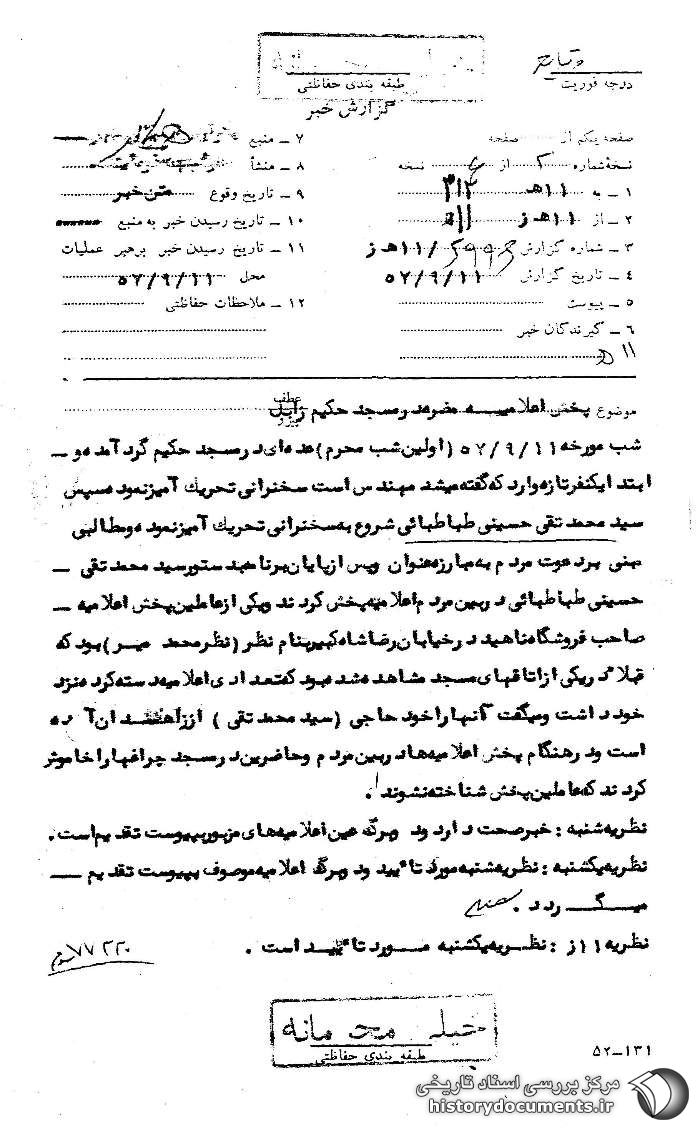 خیلی محرمانه
طبقه بندی حفاظتی
درجه فوریت
گزارش خبر
صفحه یکم از صفحه
نسخه شماره از نسخه
۱ – به ۱۱ هـ ۳۱۲
۲ – از ۱۱ هـ ز
۳ – شماره گزارش /۱۱ هـ ز
۴ – تاریخ گزارش ۵۷/۹/۱۱
۵ – پیوست
۶ – گیرندگان خبر
۷ – منبع
۸ – منشأ
۹ – تاریخ وقوع متن خبر
۱۰ – تاریخ رسیدن خبر به منبع
۱۱ – تاریخ رسیدن خبر برهبر عملیات
محل ۵۷/۹/۱۱
۱۲ – ملاحظات حفاظتی
موضوع پخش اعلامیه مضره در مسجد حکیم زابل
عطف
پیرو
شب مورخه ۵۷/۹/۱۱ (اولین شب محرم) عده ای در مسجد حکیم گرد آمده و –
ابتدا یکنفر تازه وارد که گفته میشد مهندس است سخنرانی تحریک آمیز نموده سپس
سید محمد تقی حسینی طباطبائی شروع به سخنرانی تحریک آمیز نموده و مطالبی
مبنی بر دعوت مردم به مبارزه عنوان وپس از پایان برنامه بدستور سید محمد تقی –
حسینی طباطبائی در بین مردم اعلامیه پخش کردند ویکی از عاملین پخش اعلامیه –
صاحب فروشگاه ناهید در خیابان رضا شاه کبیر بنام نظر (نظر محمد میر) بود که
قبلا در یکی از اتاقهای مسجد مشاهده شده بود که تعدادی اعلامیه دسته کرده نزد
خود داشت ومیگفت آنها را خود حاجی (سید محمد تقی) از زاهدان آورده
است ودر هنگام پخش اعلامیه ها در بین مردم وحاضرین در مسجد چراغها را خاموش
کردند که عاملین پخش شناخته نشوند.
نظریه شنبه : خبر صحت دارد و دو برگه عین اعلامیه های مزبور بپیوست تقدیم است.
نظریه یکشنبه : نظریه شنبه مورد تائید و دو برگ اعلامیه موصوف بپیوست تقدیم –
میگردد.
نظریه ۱۱ ز : نظریه یکشنبه مورد تائید است.
۷۷۲۲۰
خیلی محرمانه
طبقه بندی حفاظتی
۵۲–۱۳۱
مرکز بررسی اسناد تاریخی
historydocuments.ir